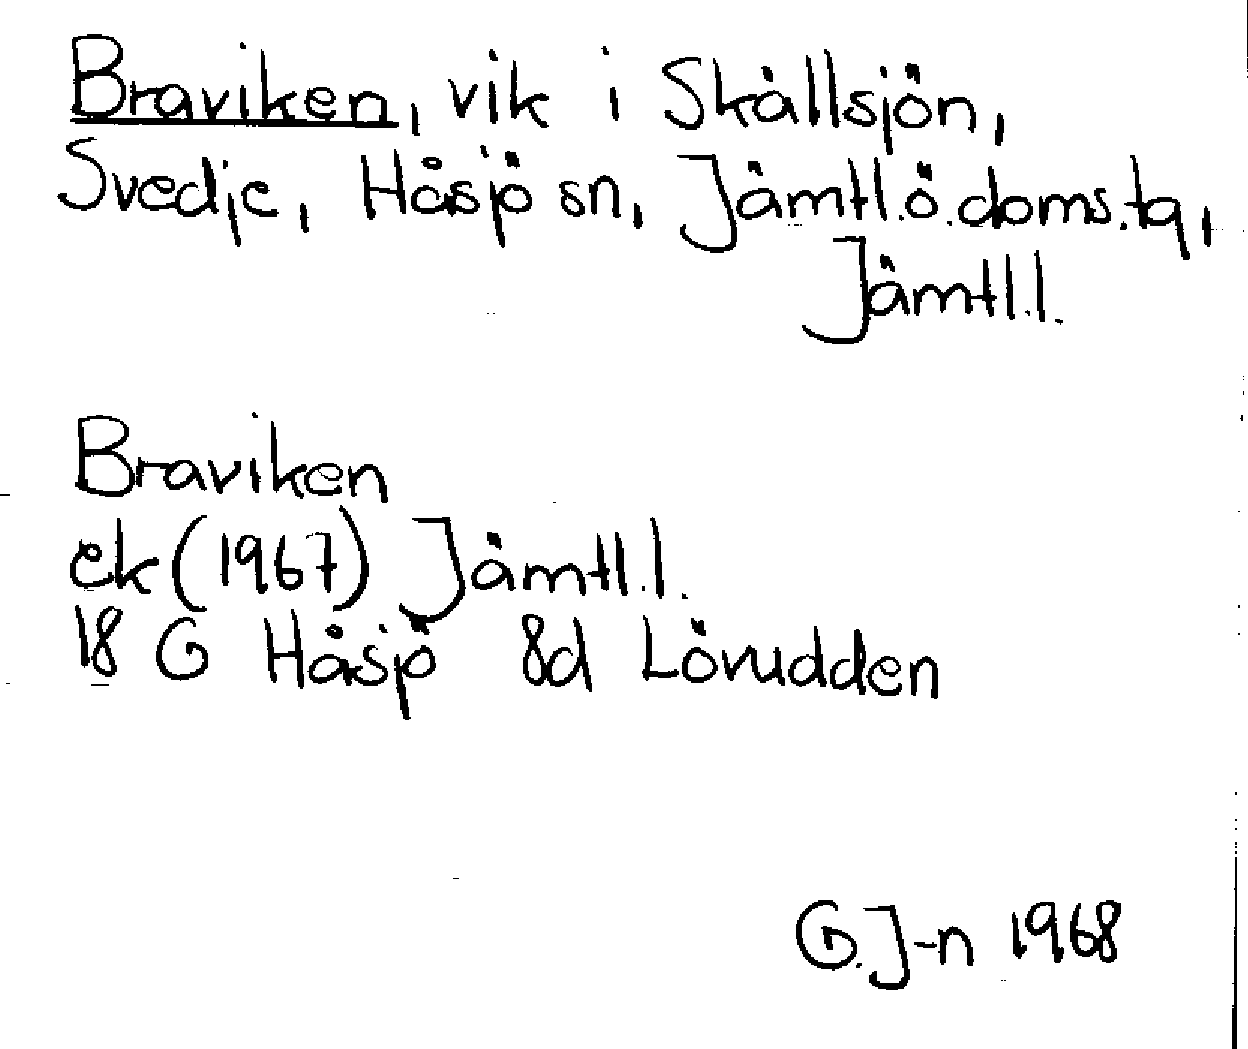 Braviken, vik i Skällsjön,
Svedje, Håsjö sn, Jämtl.ö.doms.tq,
Jämtl.l.
Braviken
ek (1967) Jämtl.l.
18 G Håsjö 8d Lövudden
G.J-n 1968